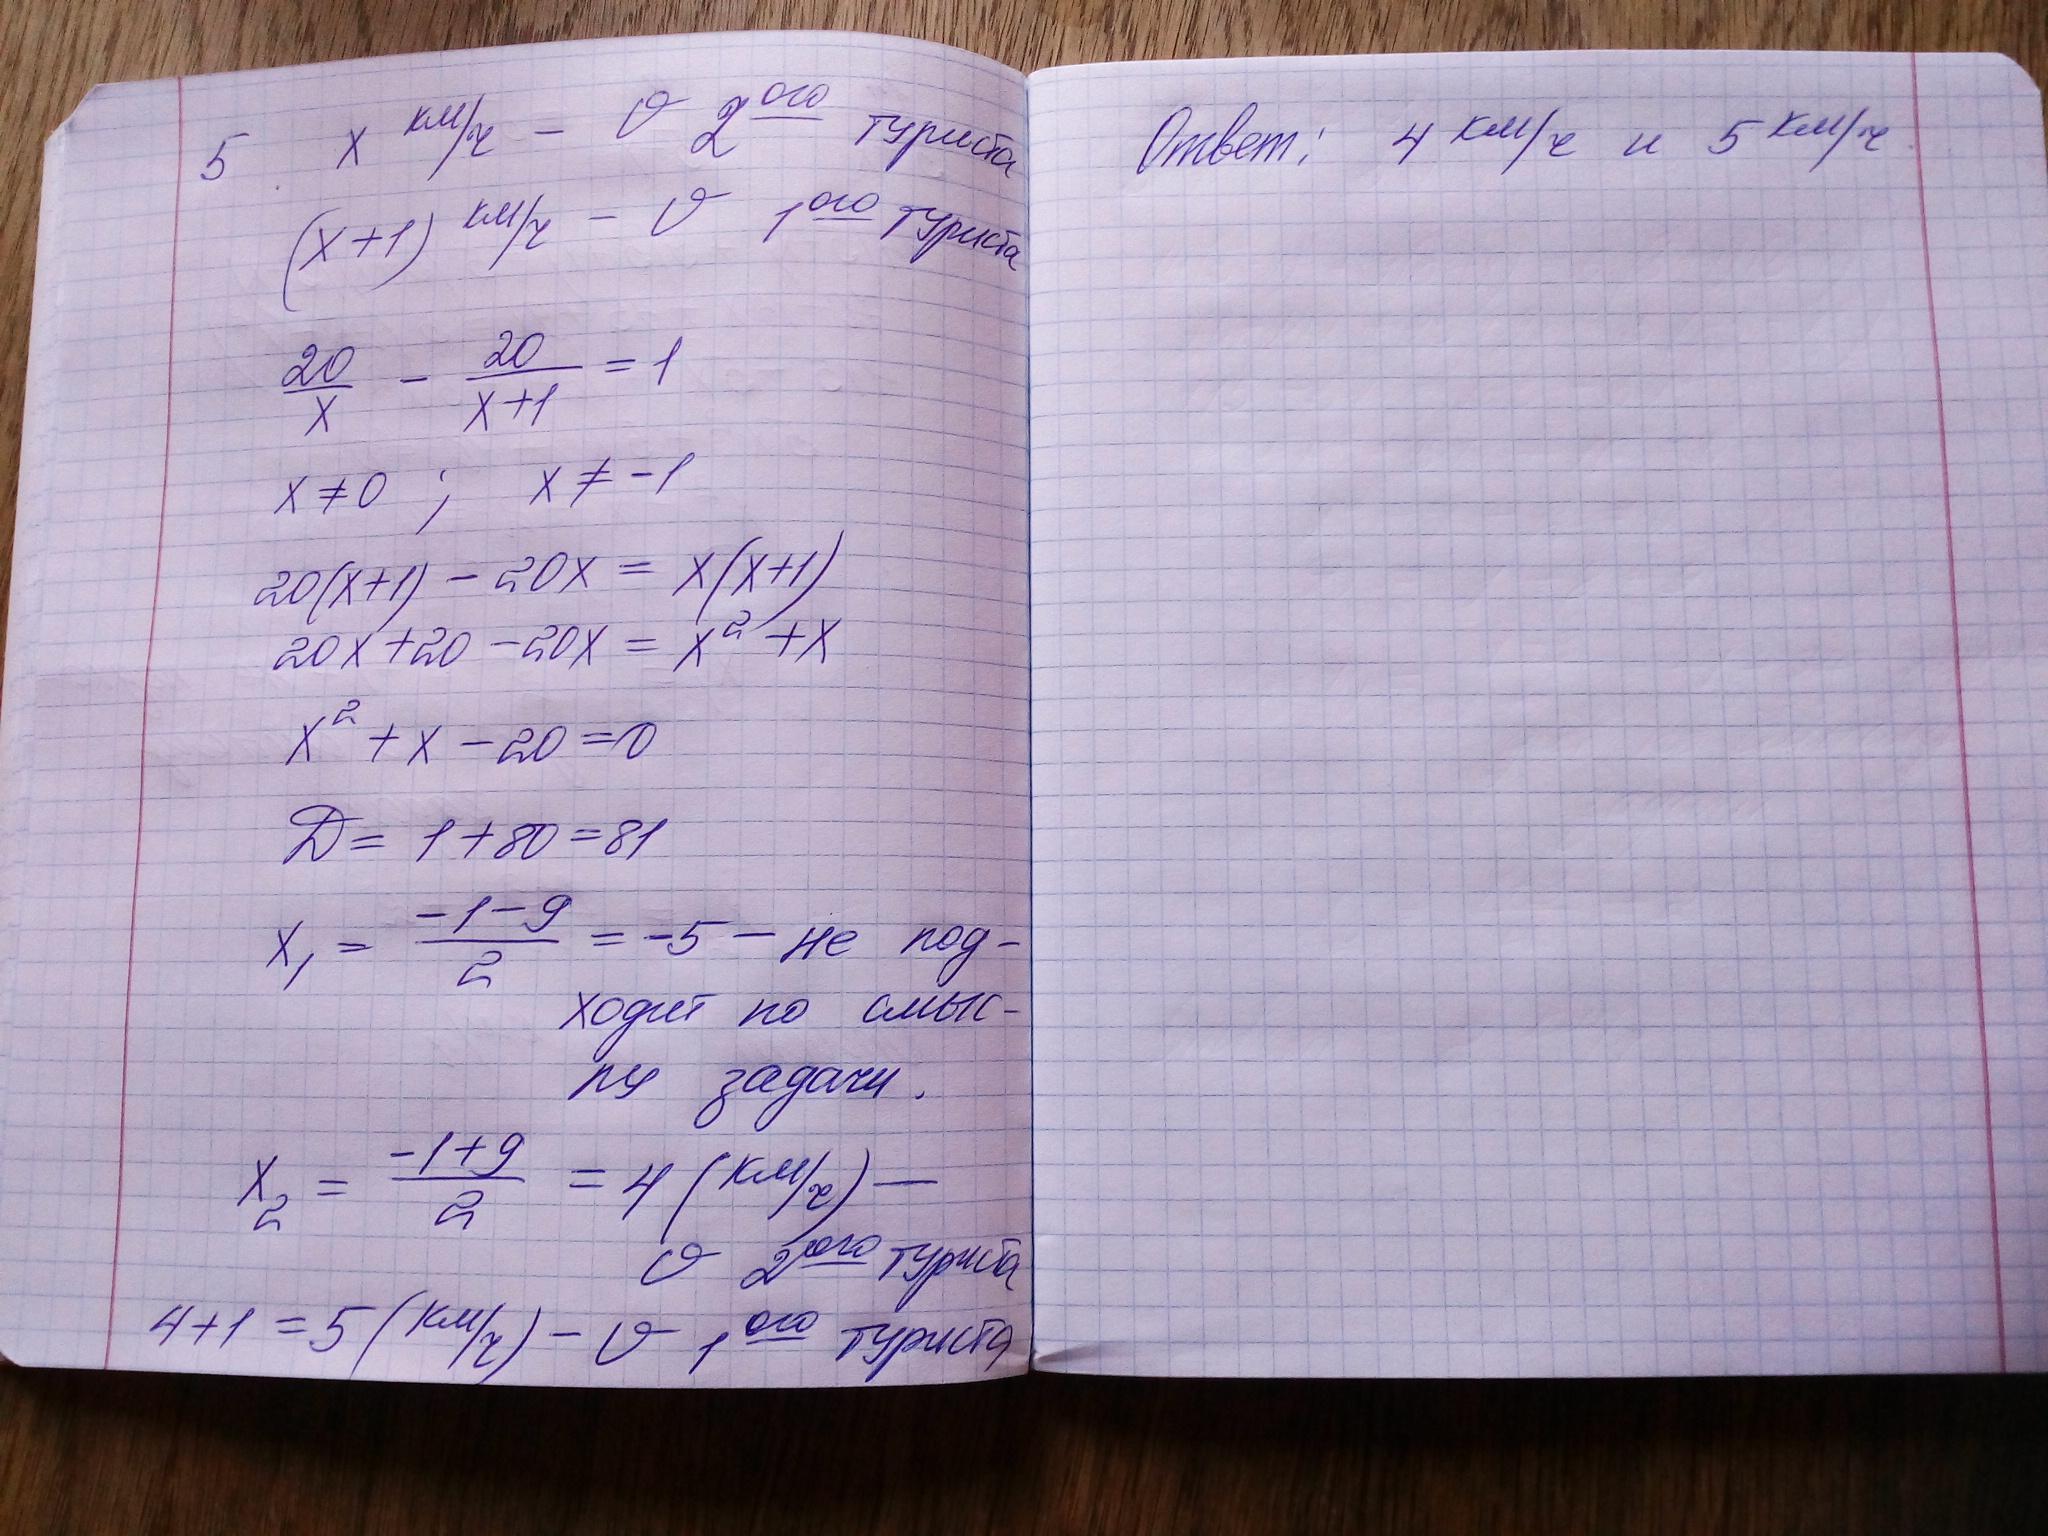 5 x км/ч - v 2ого туриста
(x+1) км/ч - v 1ого туриста
20/x - 20/(x+1) = 1
x ≠ 0 ; x ≠ -1
20(x+1) - 20x = x(x+1)
20x + 20 - 20x = x² + x
x² + x - 20 = 0
D = 1 + 80 = 81
x₁ = (-1-9)/2 = -5 - не под-
ходит по смыс-
лу задачи.
x₂ = (-1+9)/2 = 4 (км/ч) —
v 2ого туриста
4+1 = 5 (км/ч) - v 1ого туриста
Ответ: 4 км/ч и 5 км/ч.